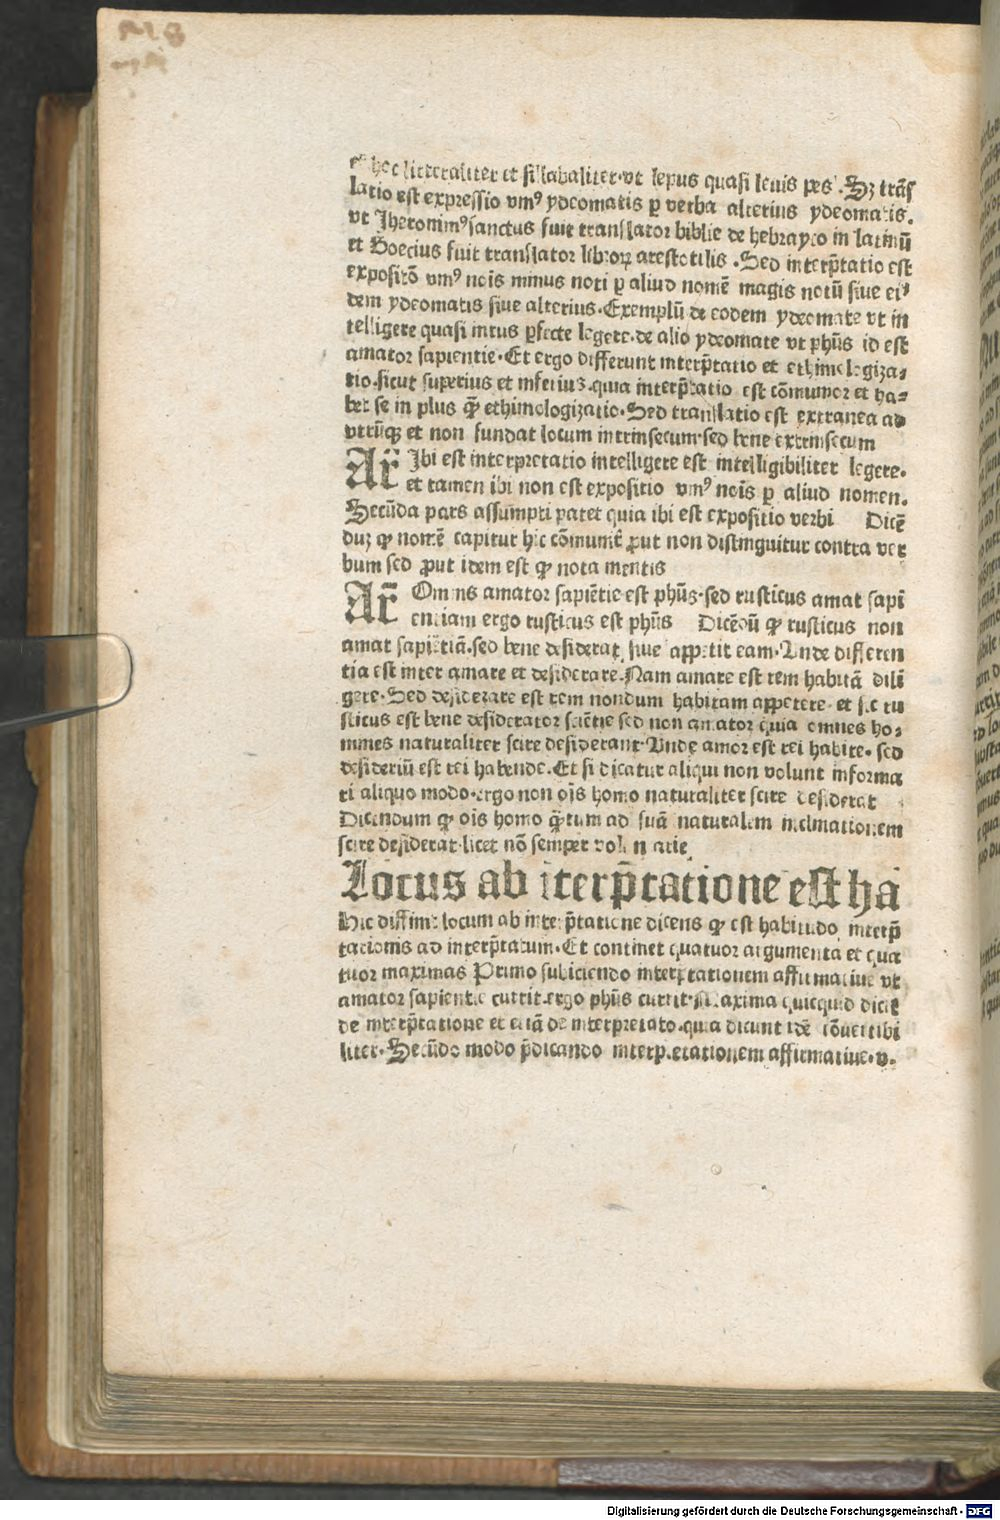 et hoc litteraliter et sillabaliter·vt lepus quasi leuis pes·Sȝ trāſ
latio est expressio vniꝰ ydeomatis ꝑ verba alterius ydeomatis.
vt Jheronimꝰ sanctus fuit translator biblie de hebrayco in latinū
et Boecius fuit translator libroꝝ arestotilis·Sed interp̄tatio est
expositō vniꝰ nōis minus noti ꝑ aliud nomē magis notū siue eiꝰ
dem ydeomatis siue alterius·Exemplū de eodem ydeomate vt in
telligere quasi intus ꝑfecte legere·de alio ydeomate vt ph̄us id est
amator sapientie·Et ergo differunt interp̄tatio et ethimologiza⸗
tio·sicut superius et inferius·quia interp̄tatio est cōmunior et ha⸗
bet se in plus qȝ ethimologizatio·Sed translatio est extranea ad
vtrūqȝ et non fundat locum intrinsecum·sed bene extrinsecum
Ar̄ Jbi est interpretatio intelligere est intelligibiliter legere·
et tamen ibi non est expositio vniꝰ nōis ꝑ aliud nomen.
Secūda pars assumpti patet quia ibi est expositio verbi Dicē
duȝ ꝙ nomē capitur hic cōmunit̄ ꝓut non distinguitur contra ver
bum sed ꝓut idem est ꝙ nota mentis
Ar̄ Omnis amator sapiētie est ph̄us·sed rusticus amat sapi
entiam ergo rusticus est ph̄us Dicēdū ꝙ rusticus non
amat sapiētiā·sed bene desiderat siue appetit eam·Unde differen
tia est inter amare et desiderare·Nam amare est rem habitā dili
gere·Sed desiderare est rem nondum habitam appetere·et sic ru
sticus est bene desiderator sciētie sed non amator quia omnes ho⸗
mines naturaliter scire desiderant·Unde amor est rei habite·sed
desideriū est rei habende·Et si dicatur aliqui non volunt informa
ri aliquo modo·ergo non ois homo naturaliter scire desiderat
Dicendum ꝙ ois homo qȝtum ad suā naturalem inclinationem
scire desiderat·licet nō semper
Locus ab iterp̄tatione est ha
Hic diffinit locum ab interp̄tatione dicens ꝙ est habitudo interp̄
tationis ad interp̄tatum·Et continet quatuor argumenta et qua
tuor maximas Primo subiciendo interp̄tationem affirmatiue vt
amator sapientie currit·ergo ph̄us currit·Maxima quicquid dicit̄
de interp̄tatione et etiā de interpretato·quia dicunt idē cōuertibi
liter·Secūdo modo p̄dicando interp̄tationem affirmatiue·v.
Digitalisierung gefördert durch die Deutsche Forschungsgemeinschaft - DFG